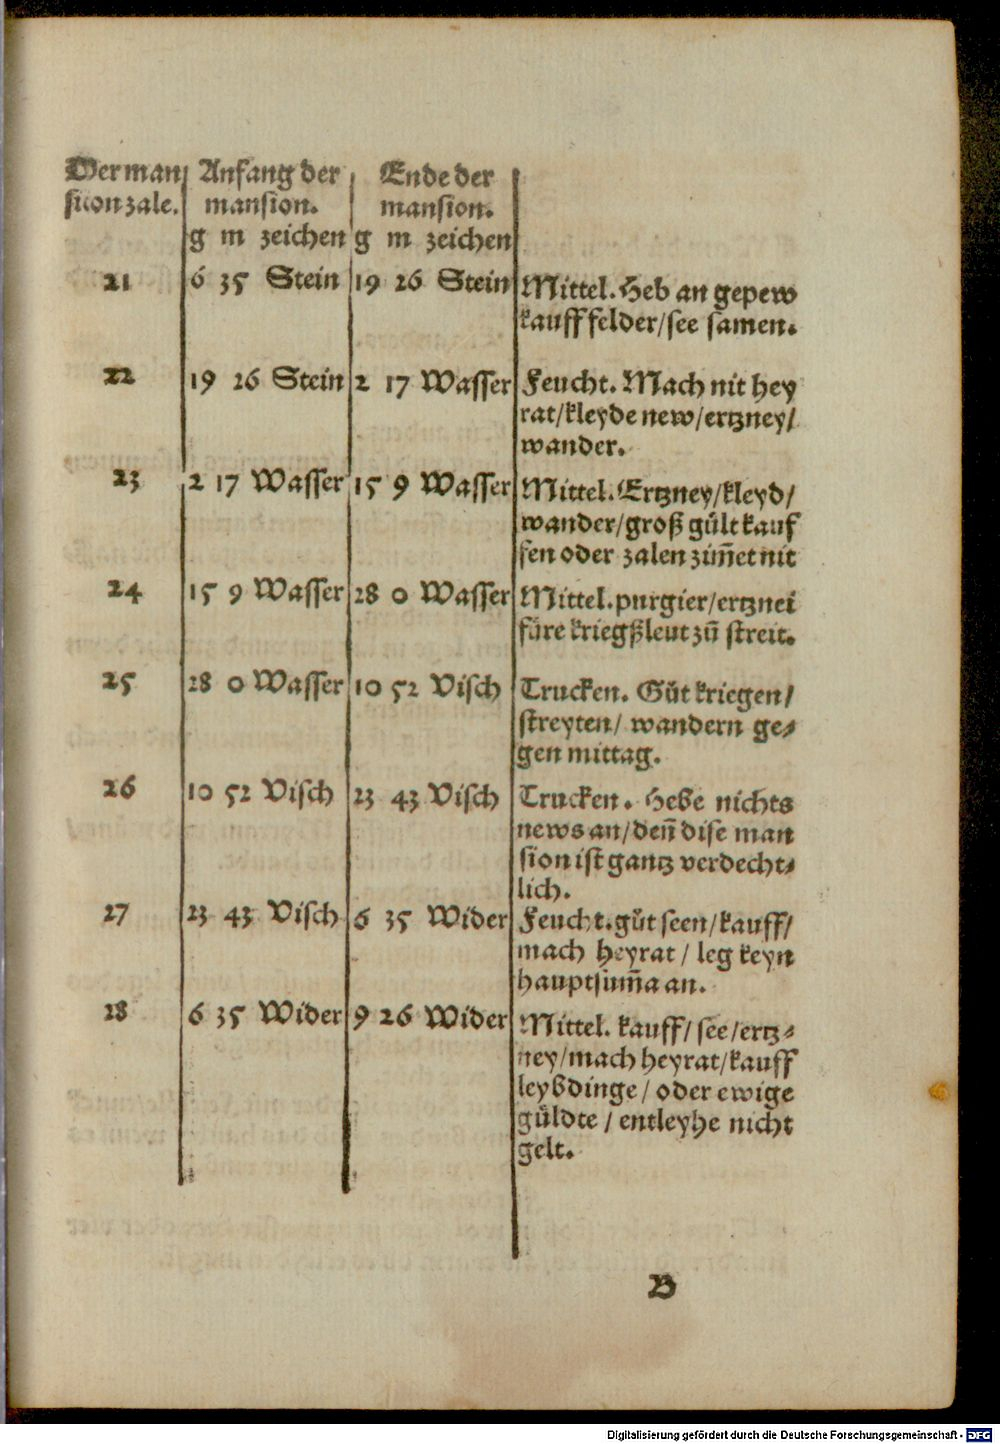 Der man Anfang der Ende der
sion zale. mansion. mansion.
g m zeichen g m zeichen
21 6 35 Stein 19 26 Stein Mittel. Heb an gepew
kauff felder/see samen.
22 19 26 Stein 2 17 Wasser Feucht. Mach nit hey
rat/kleyde new/ertzney/
wander.
23 2 17 Wasser 15 9 Wasser Mittel. Ertzney/kleyd/
wander/groß guͤlt kauf
fen oder zalen zim̄et nit
24 15 9 Wasser 28 0 Wasser Mittel. purgier/ertznei
fuͤre kriegßleut zuͦ streit.
25 28 0 Wasser 10 52 Visch Trucken. Guͦt kriegen/
streyten/ wandern ge⸗
gen mittag.
26 10 52 Visch 23 43 Visch Trucken. Hebe nichts
news an/den̄ dise man
sion ist gantz verdecht⸗
lich.
27 23 43 Visch 6 35 Wider Feucht. guͦt seen/kauff/
mach heyrat / leg keyn
hauptsum̄a an.
28 6 35 Wider 9 26 Wider Mittel. kauff/ see/ertz⸗
ney/mach heyrat/kauff
leybdinge/ oder ewige
guͤldte / entleyhe nicht
gelt.
B
Digitalisierung gefördert durch die Deutsche Forschungsgemeinschaft - DFG